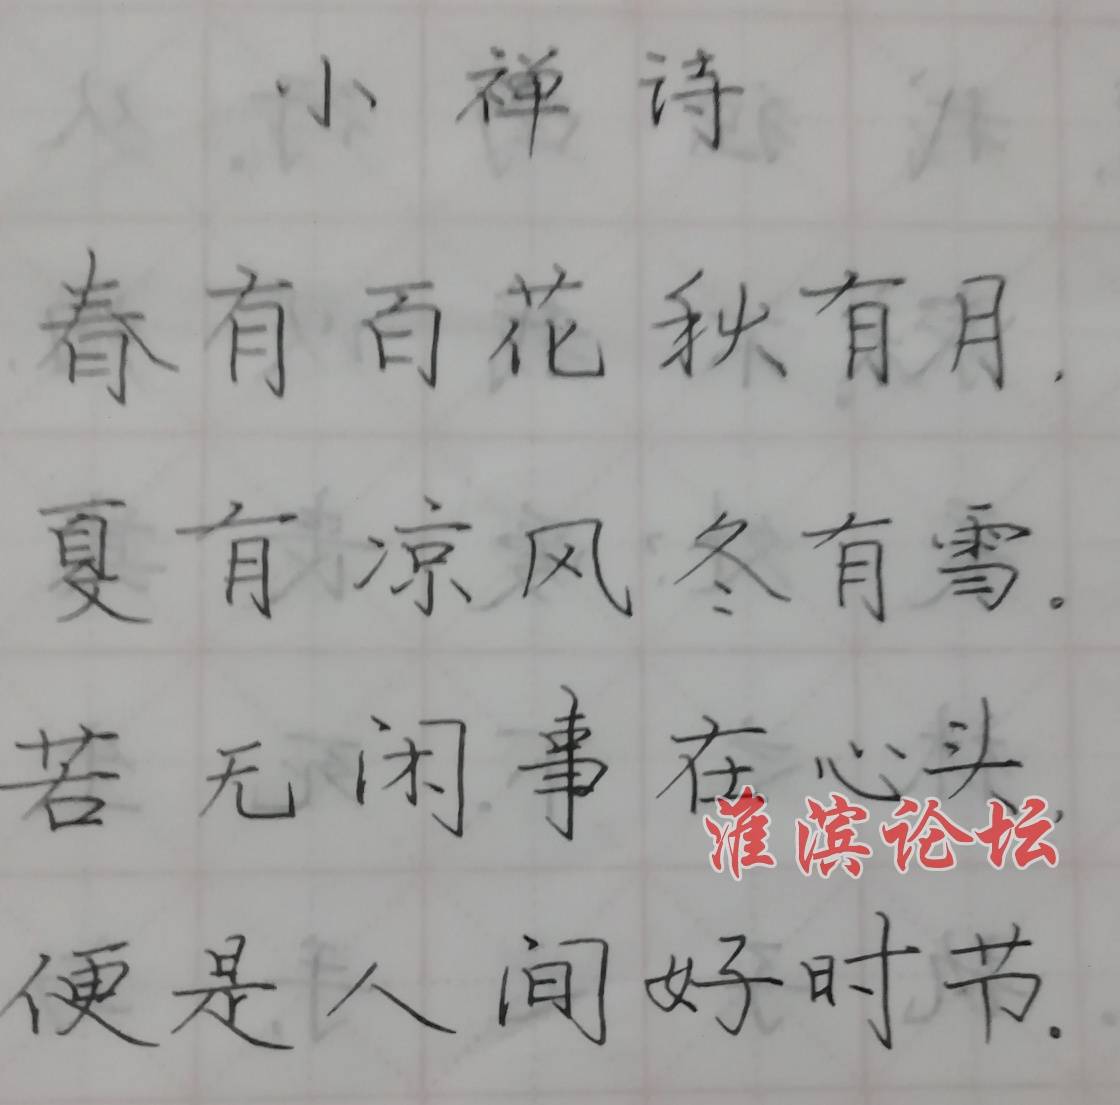 小禅诗
春有百花秋有月.
夏有凉风冬有雪。
若无闲事在心头,
淮滨论坛
便是人间好时节.